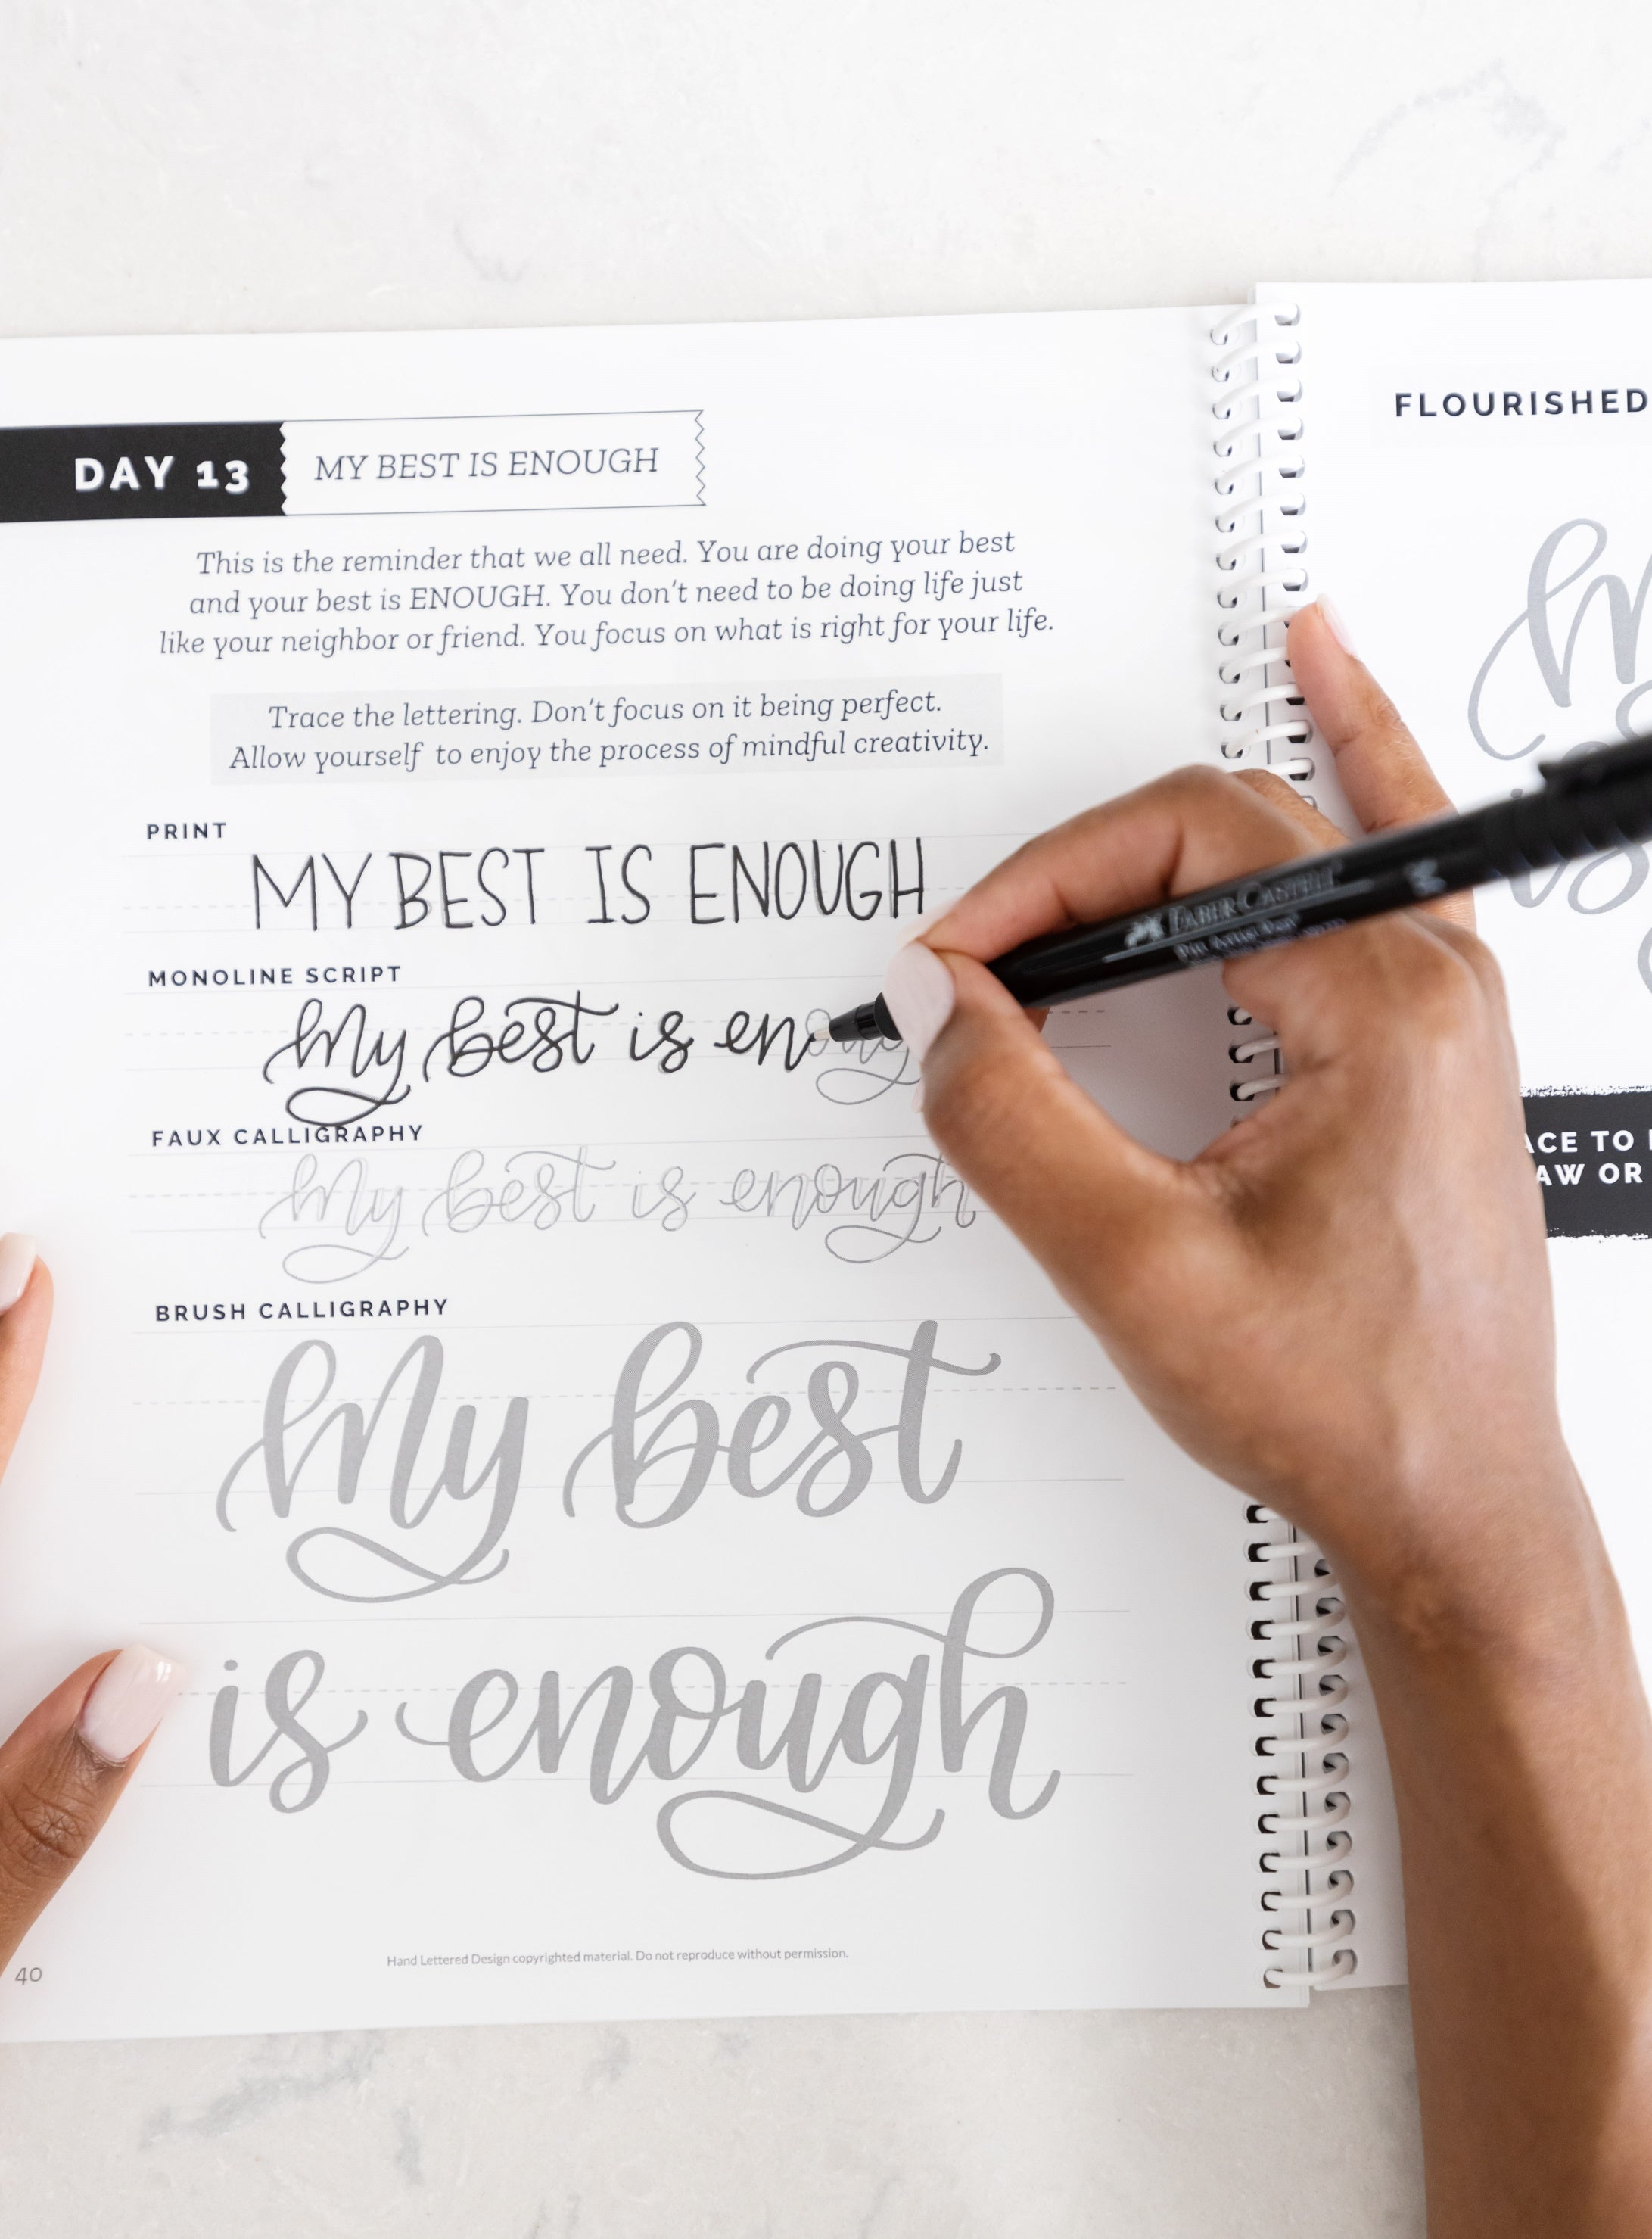 DAY 13
MY BEST IS ENOUGH
This is the reminder that we all need. You are doing your best
and your best is ENOUGH. You don't need to be doing life just
like your neighbor or friend. You focus on what is right for your life.
Trace the lettering. Don't focus on it being perfect.
Allow yourself to enjoy the process of mindful creativity.
PRINT
MY BEST IS ENOUGH
MONOLINE SCRIPT
my best is enoug
FAUX CALLIGRAPHY
my best is enough
BRUSH CALLIGRAPHY
my best
is enough
Hand Lettered Design copyrighted material. Do not reproduce without permission.
40
FABER-CASTELL
Pitt Artist Pen
FLOURISHED
is
TO
AW OR